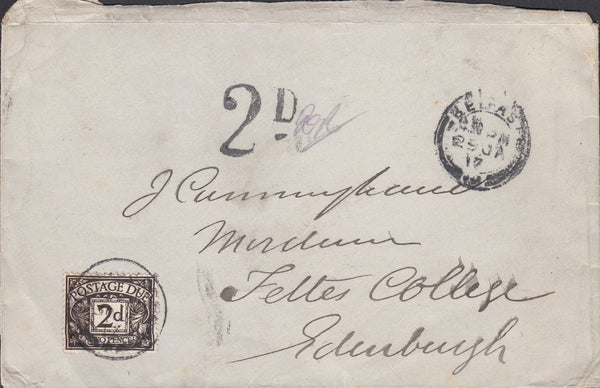 2D
BELFAST
17
J Cunningham
Fettes College
Edenburgh
POSTAGE DUE
2d
TWO PENCE